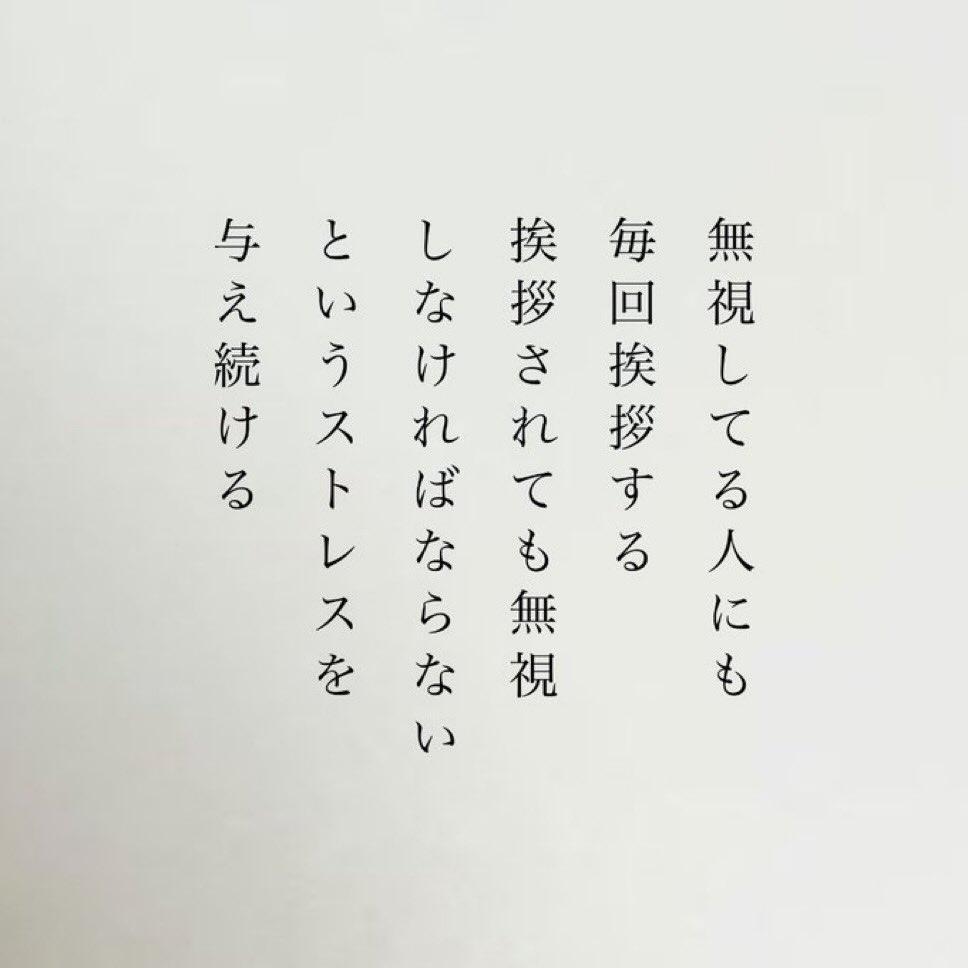 無視してる人にも
毎回挨拶する
挨拶されても無視
しなければならない
というストレスを
与え続ける